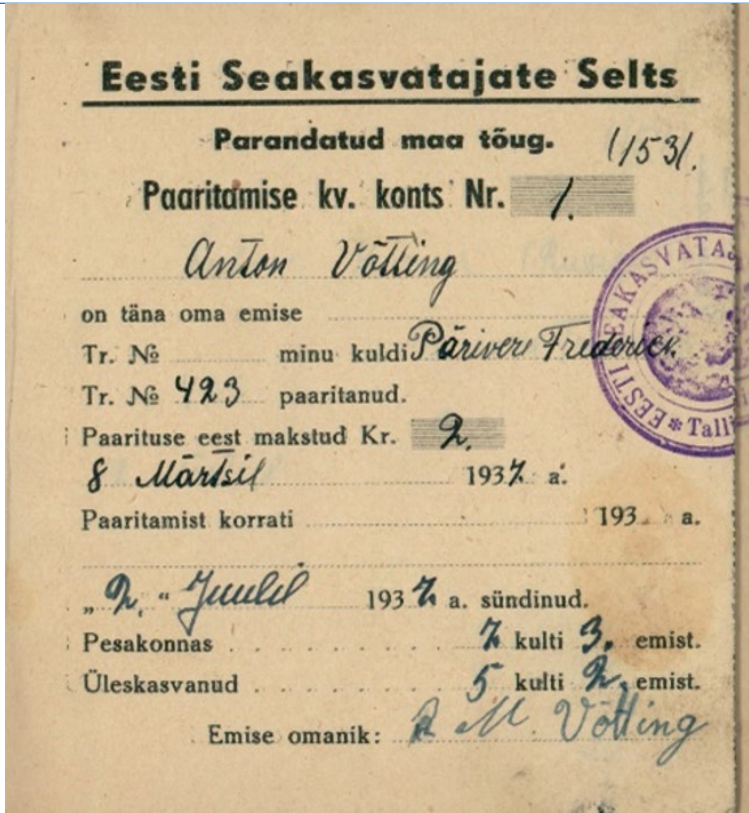 Eesti Seakasvatajate Selts
Parandatud maa tõug.
1153/.
Paaritamise kv. konts Nr. 1.
Anton Võtting
on täna oma emise
Tr. № minu kuldi Pärivere Frederick
Tr. № 423 paaritanud.
EESTI SEAKASVATAJ
* Talli
Paarituse eest makstud Kr. 2.
8 Märtsil 1937. a.
Paaritamist korrati 193 a.
„2." Juulil 1937. a. sündinud.
Pesakonnas 7 kulti 3. emist.
Üleskasvanud 5 kulti 2. emist.
Emise omanik: M. Võtting